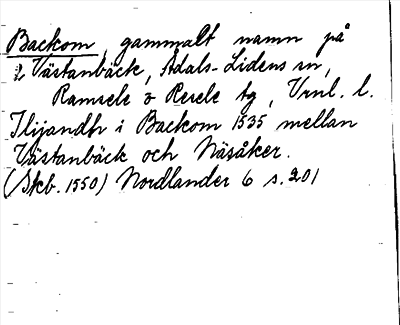 Backom, gammalt namn på
Västanbäck, Ådals-Lidens sn,
Ramsele o Resele tg, Vrnl. l.
i Backom 1535 mellan
Västanbäck och Näsåker.
(Skb. 1550) Nordlander 6 s. 201